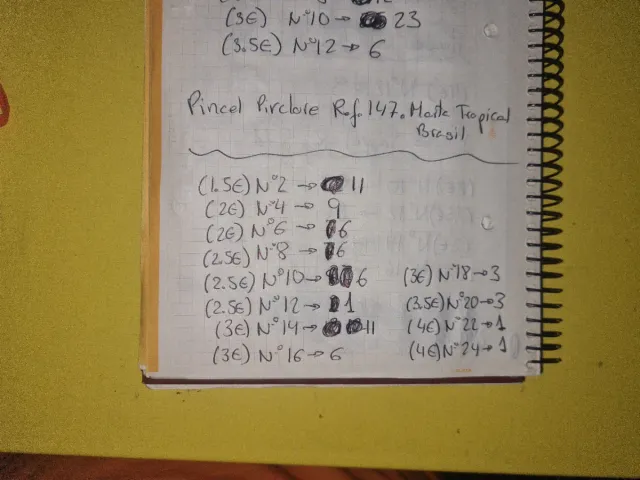 (3€) Nº10→ 23
(3.5€) Nº12→ 6
Pincel Pirclare Ref.147. Marta Tropical
Brasil
(1.5€) Nº2 → 11
(2€) Nº4 → 9
(2€) Nº6 → 6
(2.5€) Nº8 → 6
(2.5€) Nº10→ 6
(2.5€) Nº12→ 1
(3€) Nº14→ 11
(3€) Nº16→ 6
(3€) Nº18→3
(3.5€) Nº20→3
(4€) Nº22→1
(4€) Nº24→1